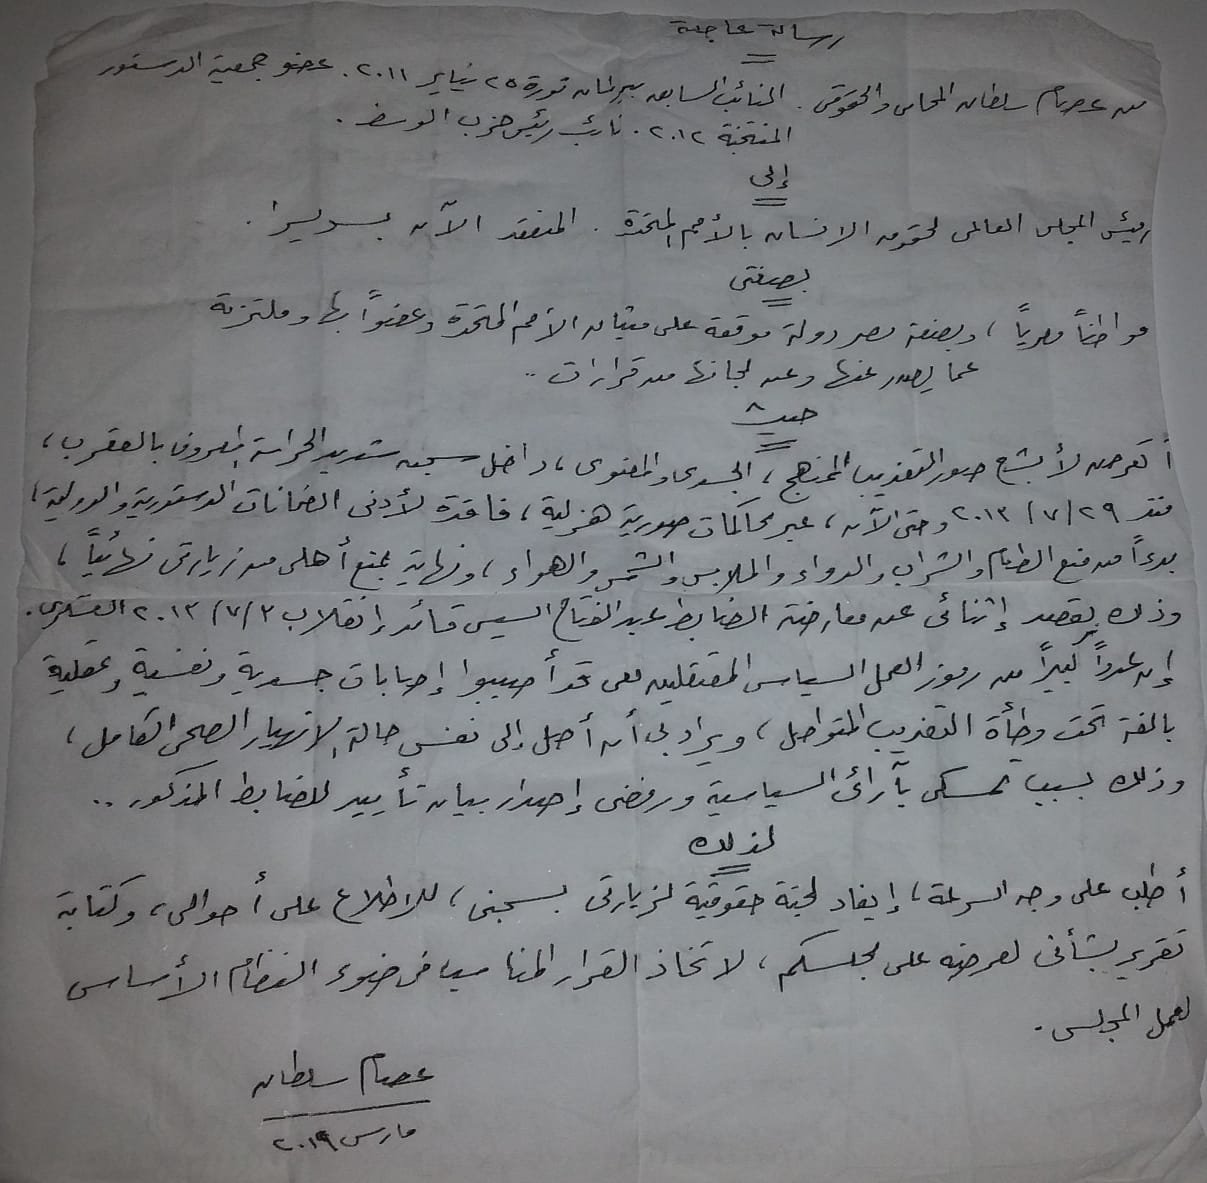 رسالة عاجلة
من عصام سلطان المحامى والحقوقى. النائب السابق ببرلمان ثورة ٢٥ يناير ٢٠١١. عضو جمعية الدستور
المنتخبة ٢٠١٢. نائب رئيس حزب الوسط.
إلى
رئيس المجلس العالمى لحقوق الانسان بالأمم المتحدة. المنعقد الآن بسويسرا.
بصفتى
مواطناً مصرياً، وبصفة مصر دولة موقعة على ميثاق الأمم المتحدة وعضواً بها وملتزمة
عما يصدر عنها وعن لجانها من قرارات ..
حيث
أتعرض لأبشع صور التعذيب الممنهج، الجسدى والمعنوى، داخل سجن شديد الحراسة المعروف بالعقرب،
منذ ٢٩/٧/٢٠١٣ وحتى الآن، عبر محاكمات صورية هزلية، فاقدة لأدنى الضمانات الدستورية والدولية،
بدءاً من منع الطعام والشراب والدواء والملابس والشمس والهواء، ونهاية بمنع أهلى من زيارتى نهائياً،
وذلك بقصد إثنائى عن معارضة الضابط عبد الفتاح السيسى قائد إنقلاب ٣/٧/٢٠١٣ العسكرى.
إن عدداً كبيراً من رموز العمل السياسى المعتقلين معى قد أصيبوا إصابات جسدية ونفسية وعقلية
بالغة تحت وطأة التعذيب المتواصل، ويراد بى أن أصل إلى نفس حالة الانهيار الصحى الكامل،
وذلك بسبب تمسكى بآرائى السياسية ورفضى إصدار بيان تأييد للضابط المذكور ..
لذلك
أطلب على وجه السرعة، إيفاد لجنة حقوقية لزيارتى بسجنى، للاطلاع على أحوالى، وكتابة
تقرير بشأنى لعرضه على مجلسكم، لاتخاذ القرار المناسب فى ضوء النظام الأساسى
لعمل المجلس.
عصام سلطان
مارس ٢٠١٩